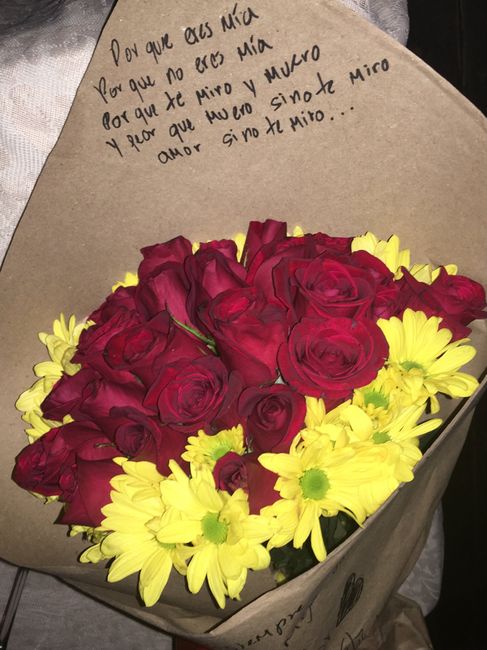 Por que eres mía
Por que no eres mía
Por que te miro y muero
Y peor que muero si no te miro
amor si no te miro...
siempre